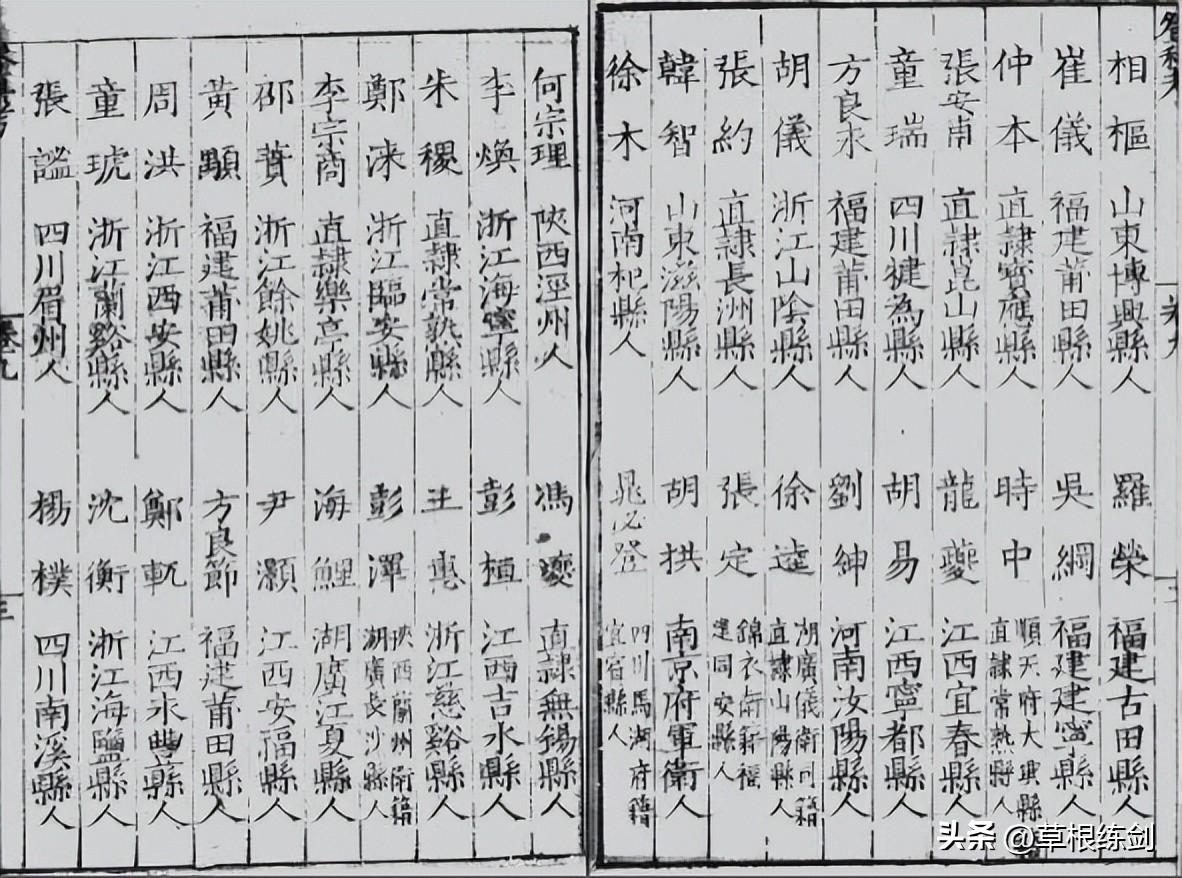 相樞 山東博興縣人 羅榮 福建古田縣人
崔儀 福建莆田縣人 吳綱 福建建寧縣人
仲本 直隷寶應縣人 時中 順天府大興縣直隷常熟縣人
張安甫 直隷崑山縣人 龍夔 江西宜春縣人
童瑞 四川犍為縣人 胡易 江西寧都縣人
方良永 福建莆田縣人 劉紳 河南汝陽縣人
胡儀 浙江山陰縣人 徐逵 湖廣儀衛司籍直隷山陽縣人
張約 直隷長洲縣人 張定 錦衣衛籍福建同安縣人
韓智 山東滋陽縣人 胡拱 南京府軍衛人
徐木 河南杞縣人 晁必登 四川馬湖府籍宜賓縣人
何宗理 陝西涇州人 馮夔 直隷無錫縣人
李煥 浙江海寧縣人 彭植 江西吉水縣人
朱稷 直隷常熟縣人 王惠 浙江慈谿縣人
鄭淶 浙江臨安縣人 彭澤 陝西蘭州衛籍湖廣長沙縣人
李宗商 直隷樂亭縣人 海鯉 湖廣江夏縣人
邵蕡 浙江餘姚縣人 尹灝 江西安福縣人
黃顒 福建莆田縣人 方良節 福建莆田縣人
周洪 浙江西安縣人 鄭軏 江西永豐縣人
童琥 浙江蘭谿縣人 沈衡 浙江海鹽縣人
張謐 四川眉州人 楊樸 四川南溪縣人
卷九
三
头条 @草根练剑